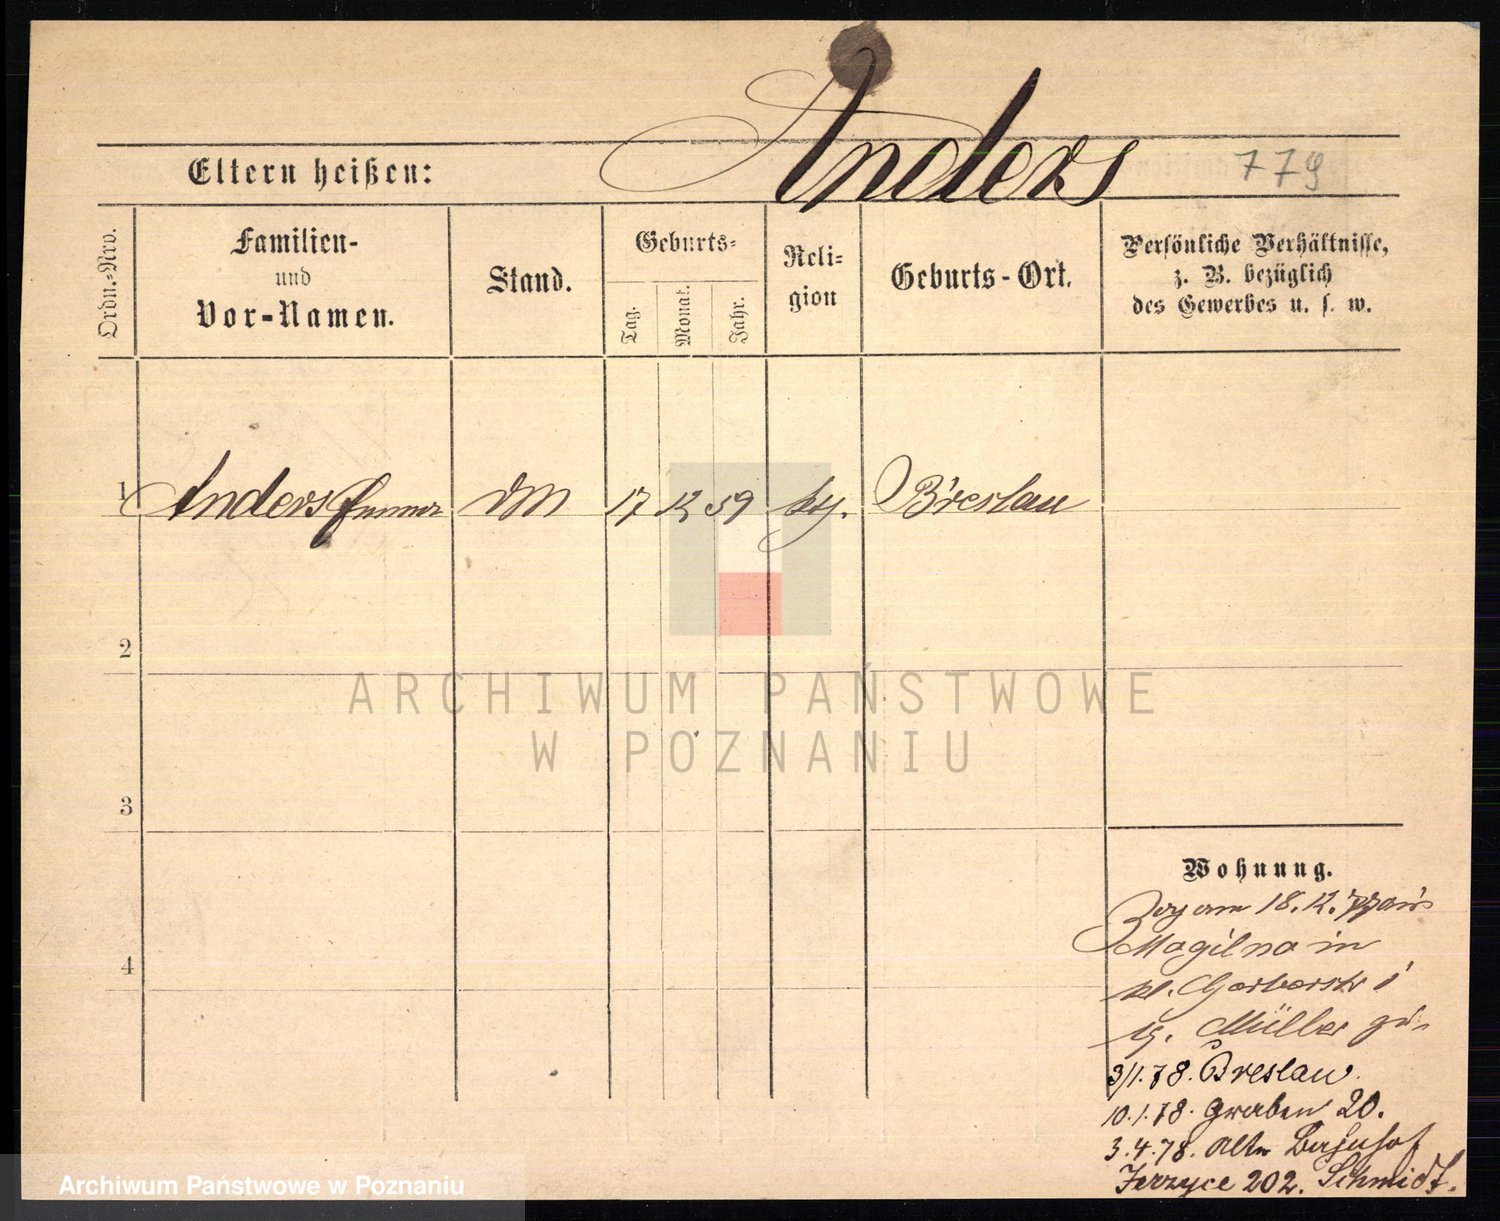 Anders
Eltern heißen:
779
Ordn.-Nro.
Familien-
und
Vor-Namen.
Stand.
Geburts-
Tag.
Monat.
Jahr.
Reli-
gion
Geburts-Ort.
Persönliche Verhältnisse,
z. B. bezüglich
des Gewerbes u. s. w.
1
Anders
17 12 59
Breslau
2
3
4
ARCHIWUM PAŃSTWOWE
W POZNANIU
Wohnung.
Zog am 18.12.77 aus
Mogilno in
kl. Gerberstr
Müller zu
3/1.78. Breslau.
10.1.78. Graben 20.
3.4.78. Alter Bahnhof
Jerzyce 202. Schmidt.
Archiwum Państwowe w Poznaniu